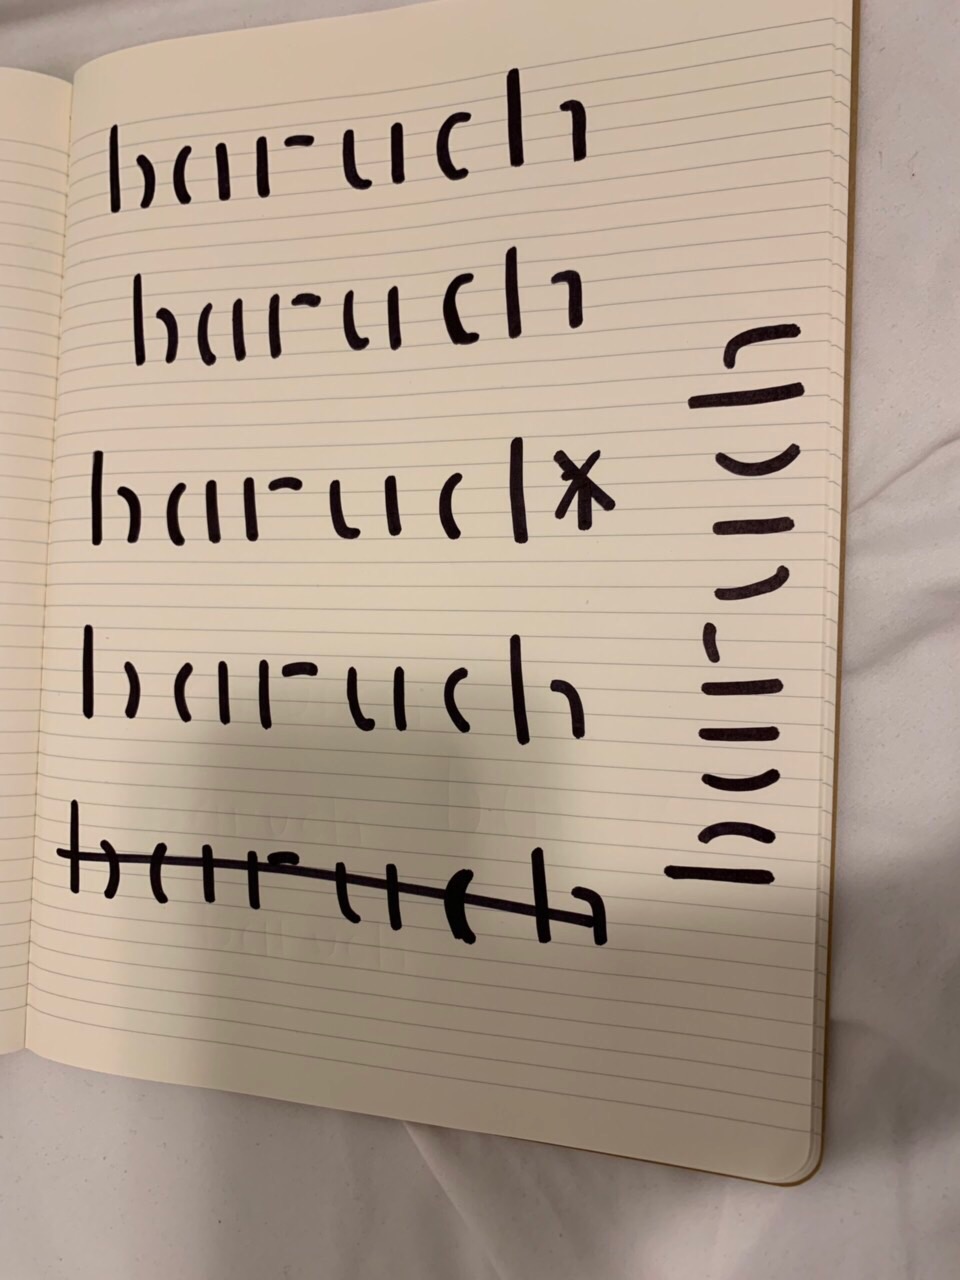 baruch
baruch
baruc|*
baruch
baruch
baruch